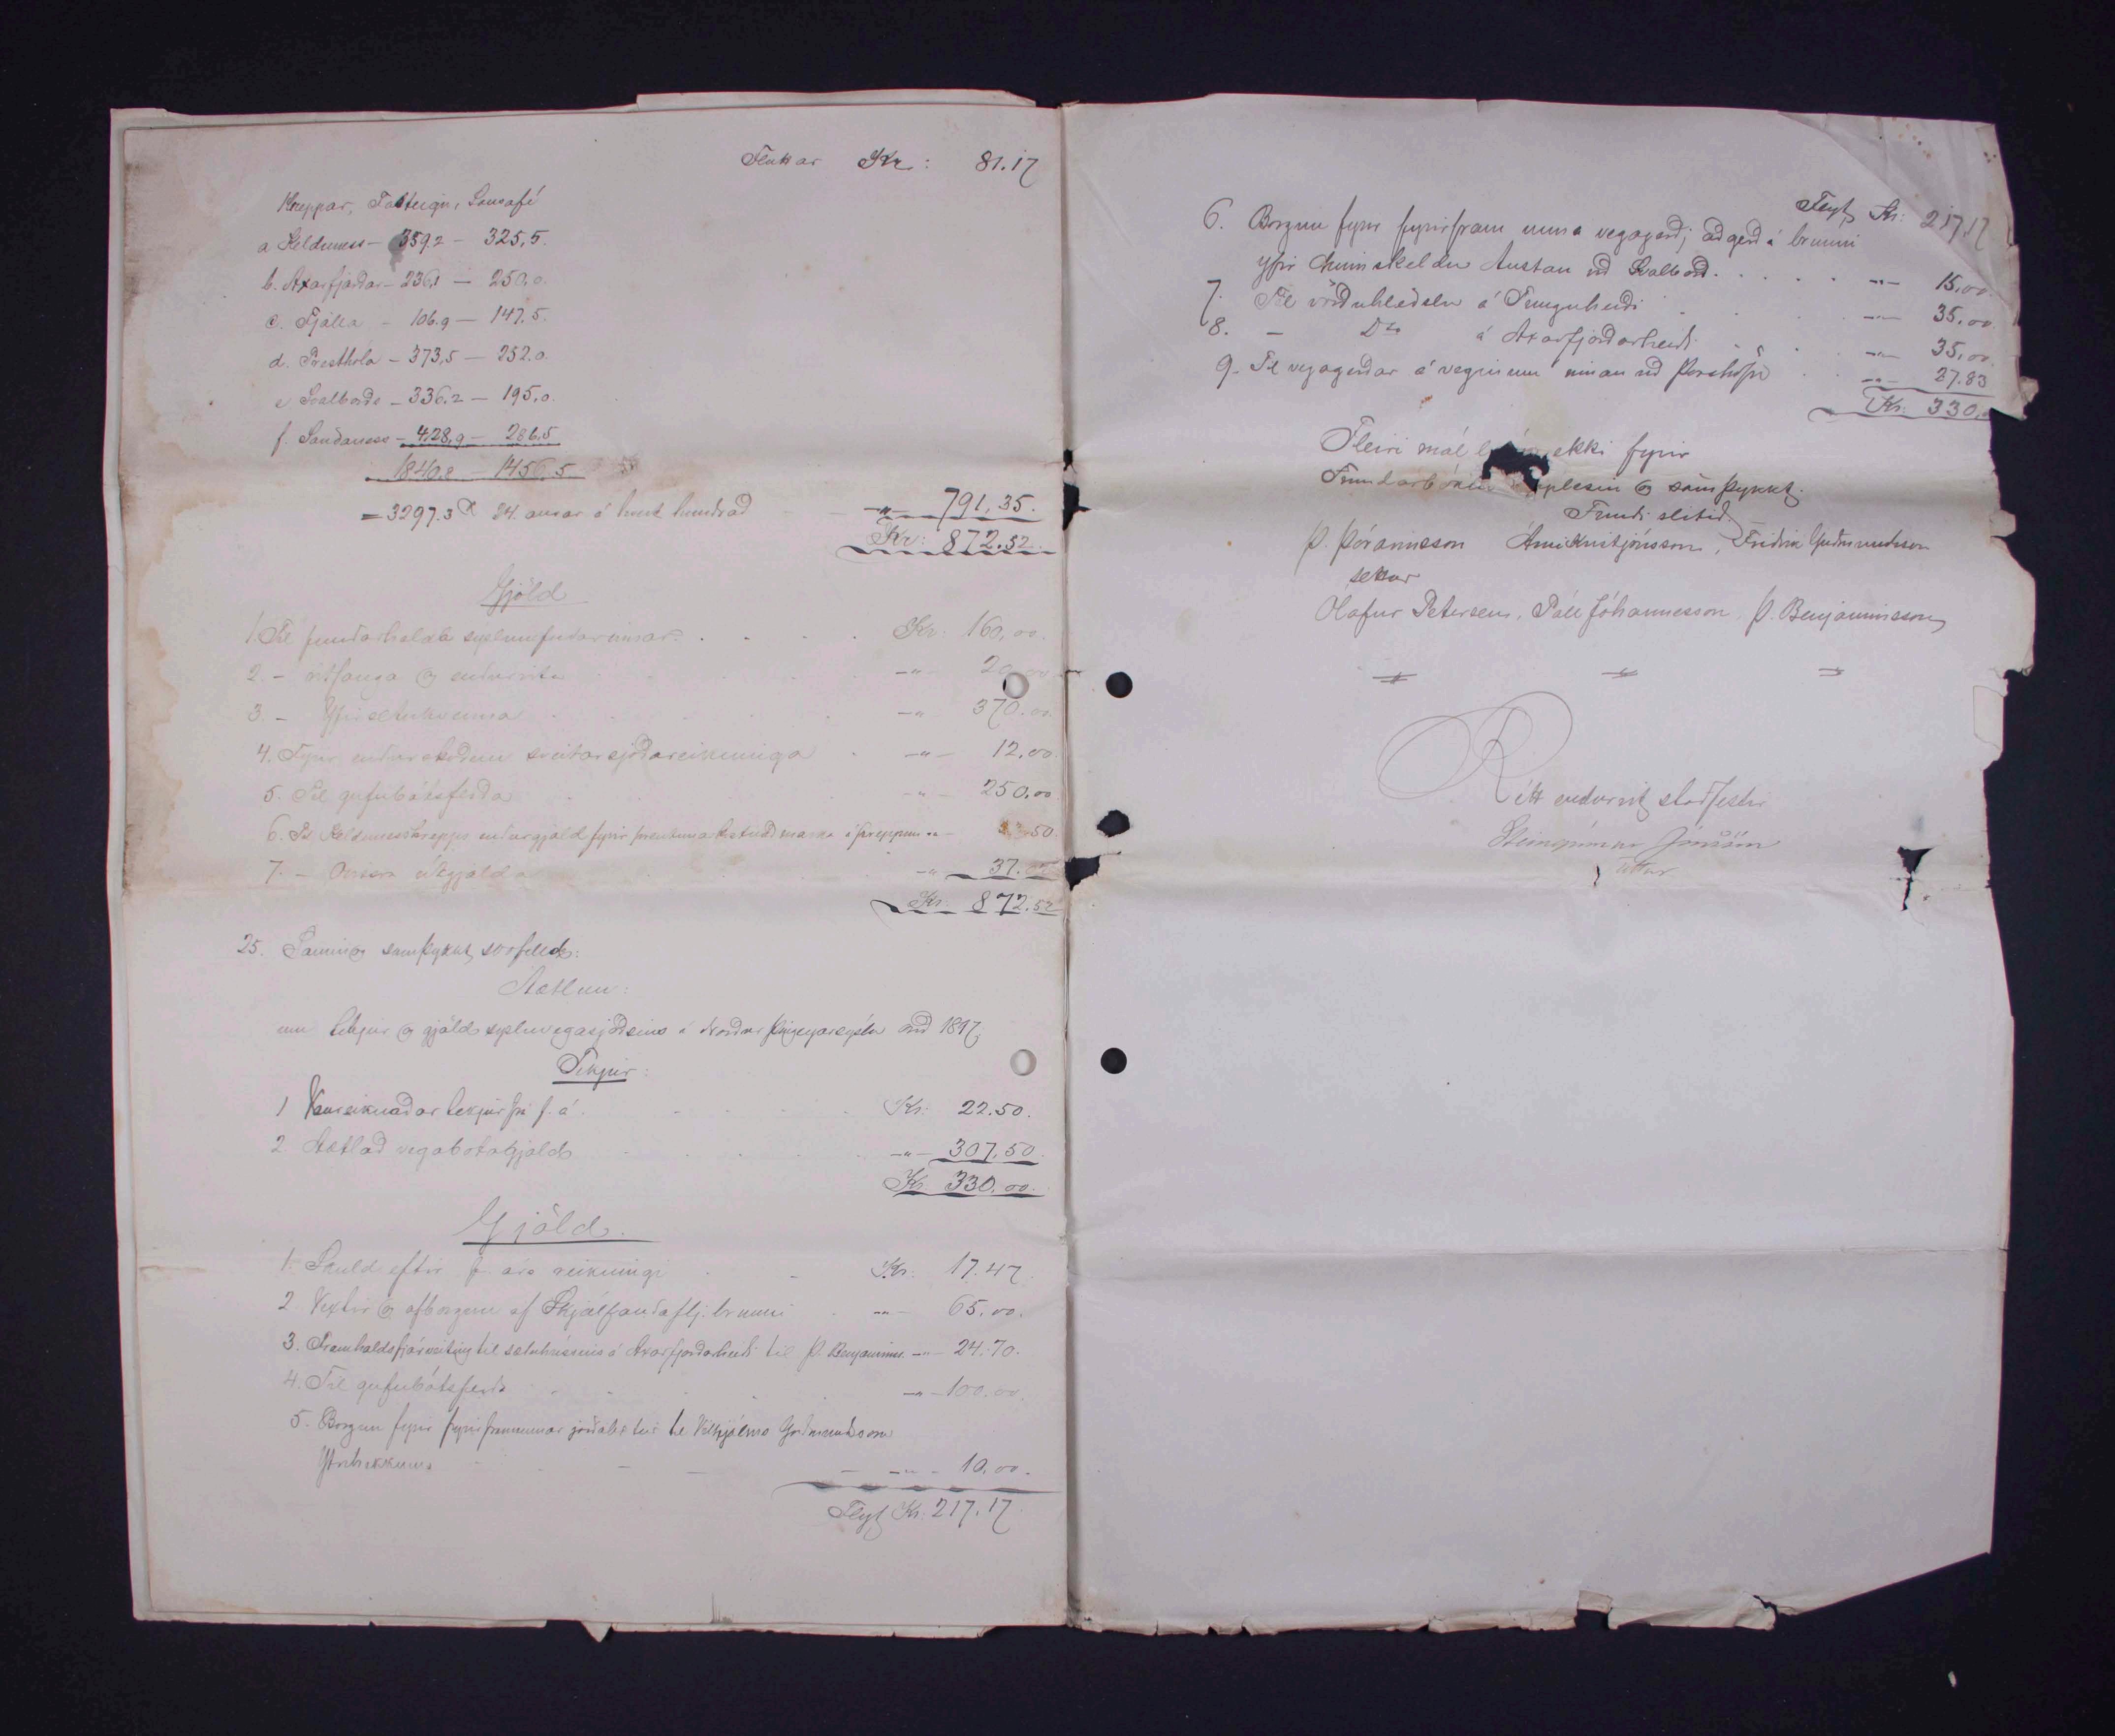 Fluttar Kr: 81.17
Hreppar, Fasteign, Lausafé
a Kelduness - 359.2 - 325,5.
b. Axarfjarðar - 236,1 - 250,0.
c. Fjalla - 106.9 - 147.5.
d. Presthóla - 373,5 - 252.0.
e Svalbarðs - 336.2 - 195,0.
f. Sauðaness - 428,9 - 286,5
1840.8 - 1456,5
= 3297.3 X 24. aurar á hvert hundrað -"- 791,35.
Kr: 872.52.
Gjöld
1. Til fundarhalda sýslunefndarinnar Kr: 160,00.
2. - ritfanga og endurrita -"- 20,00
3. - Yfirsetukvenna -"- 370.00.
4. Fyrir endurskoðun sveitarsjóðareikninga -"- 12.00.
5. Til gufubátsferða -"- 250,00
6. Til Kelduneshrepps endurgjald fyrir prentunarkostnað marka í hreppnum -"- 50.
7. - Óvissra útgjalda -"- 37.
Kr. 872.52
25. Samin og samþykkt svofelld:
Áætlun:
um tekjur og gjöld sýsluvegasjóðsins í Norður Þingeyarsýslu árið 1897.
Tekjur:
1 Vanreiknaðar tekjur frá f. á. Kr: 22.50.
2. Áætlað vegabótagjald -"- 307,50.
Kr. 330,00.
Gjöld.
1. Skuld eftir f. árs reikningi Kr. 17.47
2 Vextir og afborgun af Skjálfandaflj. brúnni -"- 65,00.
3. Framhaldsfjárveiting til sæluhússins á Axarfjarðarheiði til Þ. Benjamíns. -"- 24.70.
4. Til gufubátsferða -"- 100.00.
5. Borgun fyrir fyrirframunnar jarðabætur til Vilhjálms Guðmundssonar
Ytribrekkum -"- 10.00.
Flyt Kr. 217.17
Flyt Kr: 217.17
6. Borgun fyrir fyrirfram unna vegagerð; aðgerð á brunni
yfir Austan við Svalbarð. -"- 15,00.
7. Til vörðuhleðslu á Tunguheiði -"- 35,00.
8. - Do á Axarfjarðarheiði -"- 35,00.
9. Til vegagerðar á veginum innan við Þórshöfn -"- 27.83
Kr: 330,
Fleiri mál ekki fyrir
Fundarbókin upplesin og samþykkt.
Fundi slitið.
B. Þórarinsson Árni Kristjánsson, Friðrik Guðmundsson
settur
Ólafur Petersen, Páll Jóhannesson, Þ. Benjamínsson
Rétt endurrit staðfestir
Steingrímur Jónsson
settur